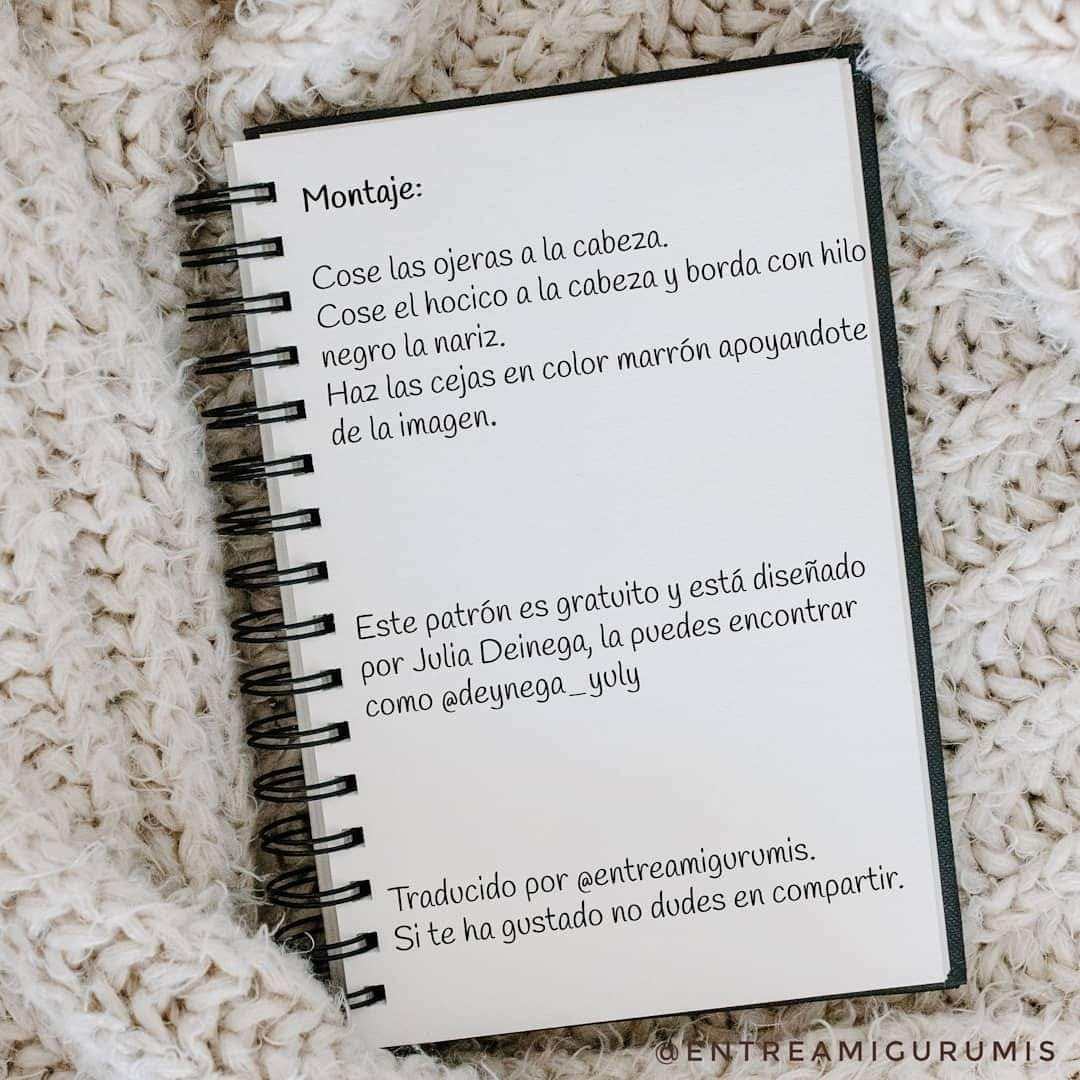 Montaje:
Cose las ojeras a la cabeza.
Cose el hocico a la cabeza y borda con hilo
negro la nariz.
Haz las cejas en color marrón apoyandote
de la imagen.
Este patrón es gratuito y está diseñado
por Julia Deinega, la puedes encontrar
como @deynega_yuly
Traducido por @entreamigurumis.
Si te ha gustado no dudes en compartir.
@ENTREAMIGURUMIS